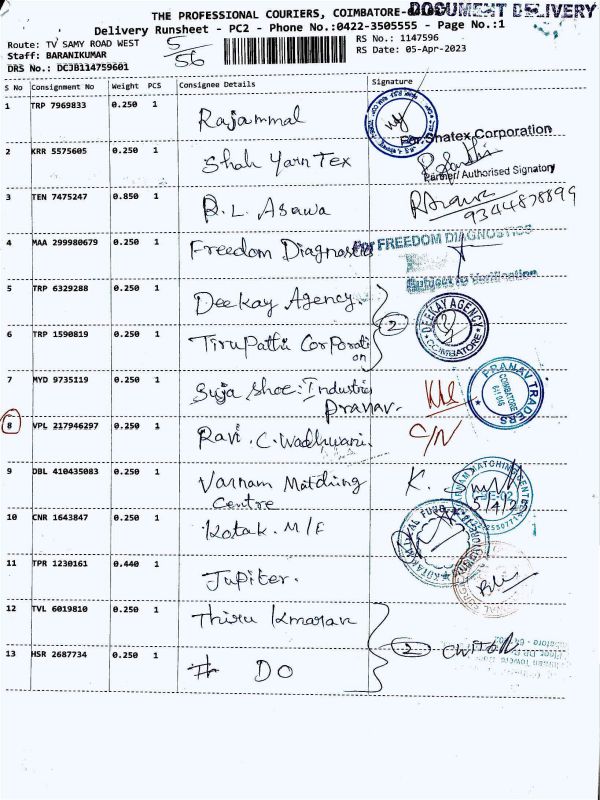 THE PROFESSIONAL COURIERS, COIMBATORE-
DOCUMENT DELIVERY
Delivery Runsheet - PC2 - Phone No.:0422-3505555 - Page No.:1
Route: TV SAMY ROAD WEST
5/56
RS No.: 1147596
Staff: BARANIKUMAR
RS Date: 05-Apr-2023
DRS No.: DCJB114759601
S No Consignment No Weight PCS Consignee Details Signature
1 TRP 7969833 0.250 1 Rajammal
For Shatex Corporation
2 KRR 5575605 0.250 1 Shah Yarn Tex
Partner/ Authorised Signatory
3 TEN 7475247 0.850 1 R. L. Asawa
9344878899
4 MAA 299980679 0.250 1 Freedom Diagnostics For FREEDOM DIAGNOSTICS
Subject to Verification
5 TRP 6329288 0.250 1 Deekay Agency.
2
DEEKAY AGENCY COIMBATORE
6 TRP 1590819 0.250 1 Tirupathi Corporati
on
7 MYD 9735119 0.250 1 Suja Shoe: Industries
Pranav.
PRANAV TRADERS COIMBATORE
8 VPL 217946297 0.250 1 Ravi. C. Wadhwani. C/N
9 DBL 410435083 0.250 1 Varnam Matching
Centre
MATCHING CENTRE
10 CNR 1643847 0.250 1 Kotak. M/F
KOTAK MUTUAL FUND
11 TPR 1230161 0.440 1 Jupiter.
12 TVL 6019810 0.250 1 Thiru Kmaran
2
13 HSR 2687734 0.250 1 DO